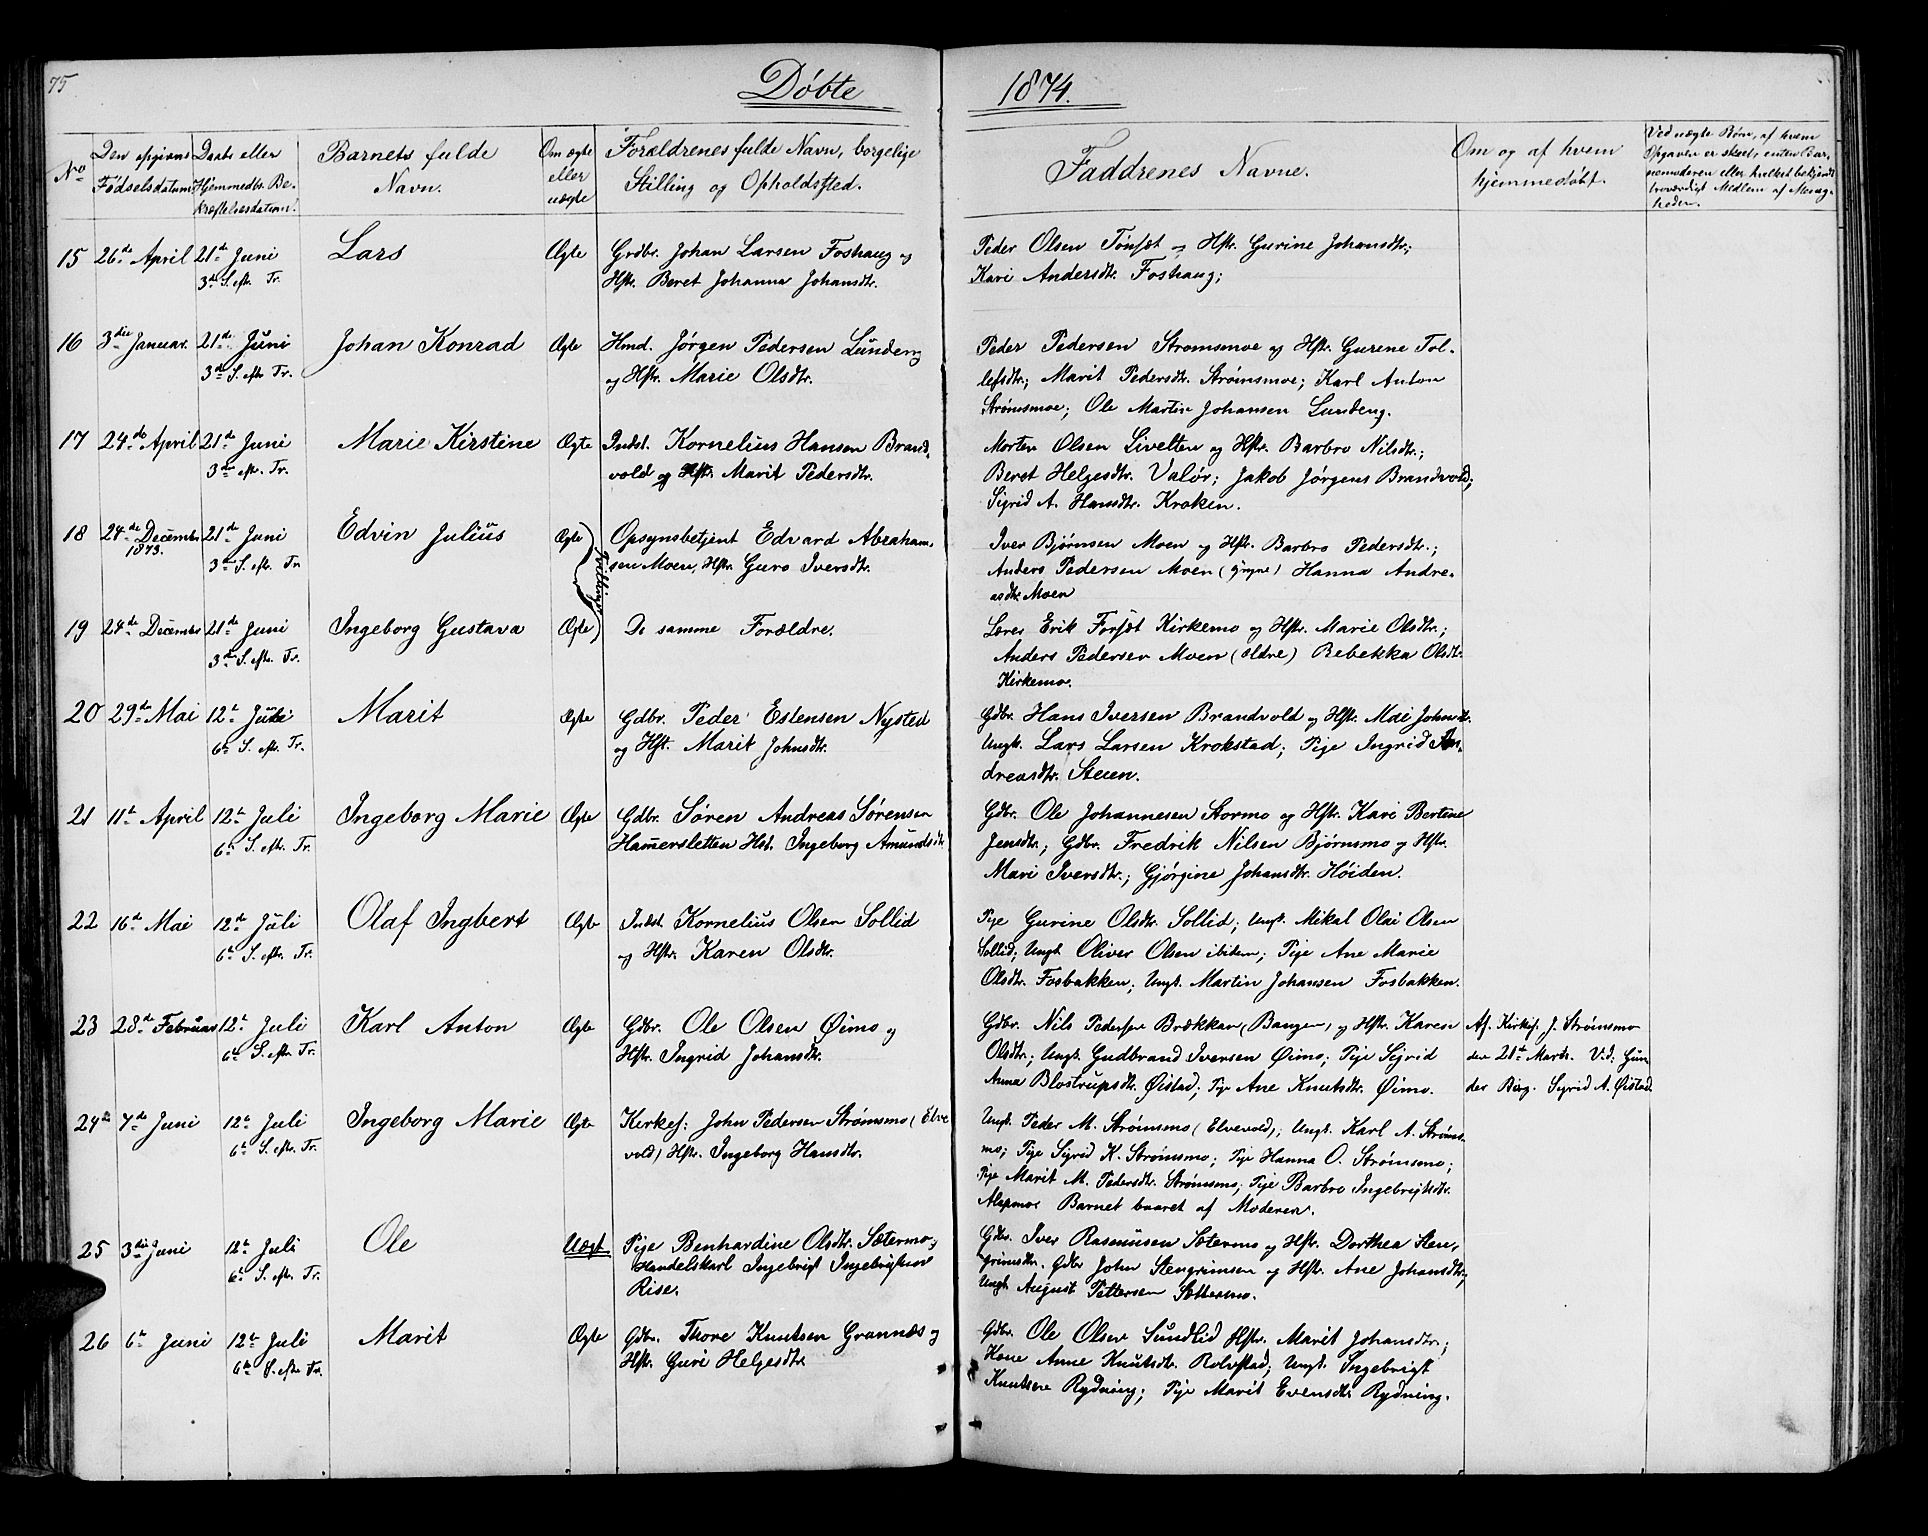 75
Døbte 1874.
No
Den opgivne Fødselsdatum.
Daabs eller Hjemmedbs. Bekræftelsesdatum.
Barnets fulde Navn.
Om ægte eller uægte
Forældrenes fulde Navn, borgelige Stilling og Opholdssted.
Faddrenes Navne.
Om og af hvem hjemmedøbt.
Ved uægte Børn, af hvem Opgaven er skeet, enten Barnemoderen eller hvilket bekjendt troværdigt Medlem af Menigheden.
15 26de April 21de Juni Lars Ægte Grdbr. Johan Larsen Foshaug og
3die S. eft. Tr. Hstr. Beret Johanna Johansdtr.
Peder Olsen Tønset og Hstr. Gurine Johansdtr.;
Kari Andersdtr. Foshaug;
16 3die Januar. 21de Juni Johan Konrad Ægte Hmd. Jørgen Pedersen Lundeng
3die S. eftr Tr. og Hstr. Marie Olsdtr.
Peder Pedersen Strømsmoe og Hstr. Gurene Tol-
lefsdtr; Marit Pedersdtr. Strømsmoe; Karl Anton
Strømsmoe; Ole Martin Johansen Lundeng.
17 24de April 21de Juni Marie Kirstine Ægte Indst. Kornelius Hansen Brand
3die eft. Tr. vold og Hstr. Marit Pedersdtr.
Morten Olsen Livelten og Hstr. Barbro Nilsdtr.;
Beret Helgesdtr. Valør; Jakob Jørgens Brandvold;
Sigrid A. Hansdtr. Kroken.
18 24de December 21de Juni Edvin Julius Ægte Opsynsbetjent Edvard Abraham-
1873. 3die S. eftr. Tr sen Moen, Hstr. Guro Iversdtr.
Tvillinger
Iver Bjørnsen Moen og Hstr. Barbro Pedersdtr.;
Anders Pedersen Moen (yngre) Hanna Andre-
asdtr. Moen
19 24de December 21de Juni Ingeborg Gustava Ægte De samme Forældre.
3die S. eftr. Tr.
Lærer Erik Forsæt Kirkemo og Hstr. Marie Olsdtr.;
Anders Pedersen Moen (ældre) Rebekka Olsdtr.
Kirkemo.
20 29de Mai 12te Juli Marit Ægte Gdbr. Peder Estensen Nysted
6te S. eftr. Tr. og Hst. Marit Johnsdtr.
Gdbr. Hans Iversen Brandvold og Hstr. Mai Johnsdtr.
Ungk. Lars Larsen Krokstad; Pige Ingrid An-
dreasdtr. Steien.
21 11te April 12te Juli Ingeborg Marie Ægte Gdbr. Søren Andreas Sørensen
6te S. eftr. Tr. Hamersletten Hst. Ingeborg Amundsdtr
Gdbr. Ole Johannesen Stormo og Hstr. Kari Bertine
Jensdtr; Gdbr. Fredrik Nilsen Bjørnsmo og Hstr.
Mari Iversdtr.; Gjørgine Johansdtr. Høiden.
22 16de Mai 12te Juli Olaf Ingbert Ægte Indst. Kornelius Olsen Sollid
6te S. eftr. Tr. og Hstr. Karen Olsdtr.
Pige Gurine Olsdtr. Sollid; Ungk. Mikal Olai Olsen
Sollid; Ungk Oliver Olsen ibidem; Pige Ane Marie
Olsdtr. Fosbakken; Ungk. Martin Johansen Fosbakken.
23 28de Februar 12te Juli Karl Anton Ægte Gdbr. Ole Olsen Øimo og
6te S. eftr. Tr. Hstr. Ingrid Johansdtr.
Gdbr. Nils Pedersen Brækkan (Bangen) og Hstr. Karen
Olsdtr; Ungk. Gudbrand Iversen Øimo; Pige Sigrid
Anna Blostrupsdtr. Øistad; Pige Ane Knutsdtr. Øimo.
Af. Kirkes. J. Strømsmo
den 21de Marts. Vid: Gun
der Berg. Sigrid A. Øistad
24de 7de Juni 12te Juli Ingeborg Marie Ægte Kirkes: John Pedersen Strømsmo (Elve
6te S. eftr. Tr. vold) Hstr. Ingeborg Hansdtr.
Ungk. Peder M. Strømsmo (Elvevold); Ungk. Karl A. Strøms-
mo; Pige Sigrid K. Strømsmo; Pige Hanna O. Strømsmo;
Pige Marit M. Pedersdtr. Strømsmo; Pige Barbro Ingebrigtsdtr.
Alapmoe Barnet baaret af Moderen.
25 3die Juni 12te Juli Ole Uægt Pige Benhardine Olsdtr. Sætermo og
6te S. eftr. Tr. Handelskarl Ingebrigt Ingebrigtsen
Rise.
Gdbr. Iver Rasmusen Sætermo og Hstr. Dorthea Sten-
grimsdtr. Gdbr John Stengrimsen og Hstr. Ane Johansdtr;
Ungk. August Pettersen Sættermo.
26 6te Juni 12te Juli Marit Ægte Gdbr. Thore Knutsen Grannæs og
6te S. eftr Tr. Hstr. Guri Helgesdtr
Gdbr. Ole Olsen Sundlid Hstr. Marit Johansdtr.;
Kone Anne Knutsdtr. Rolvstad; Ungk. Ingebrigt
Knutsen Rydning; Pige Marit Evensdtr Rydning.